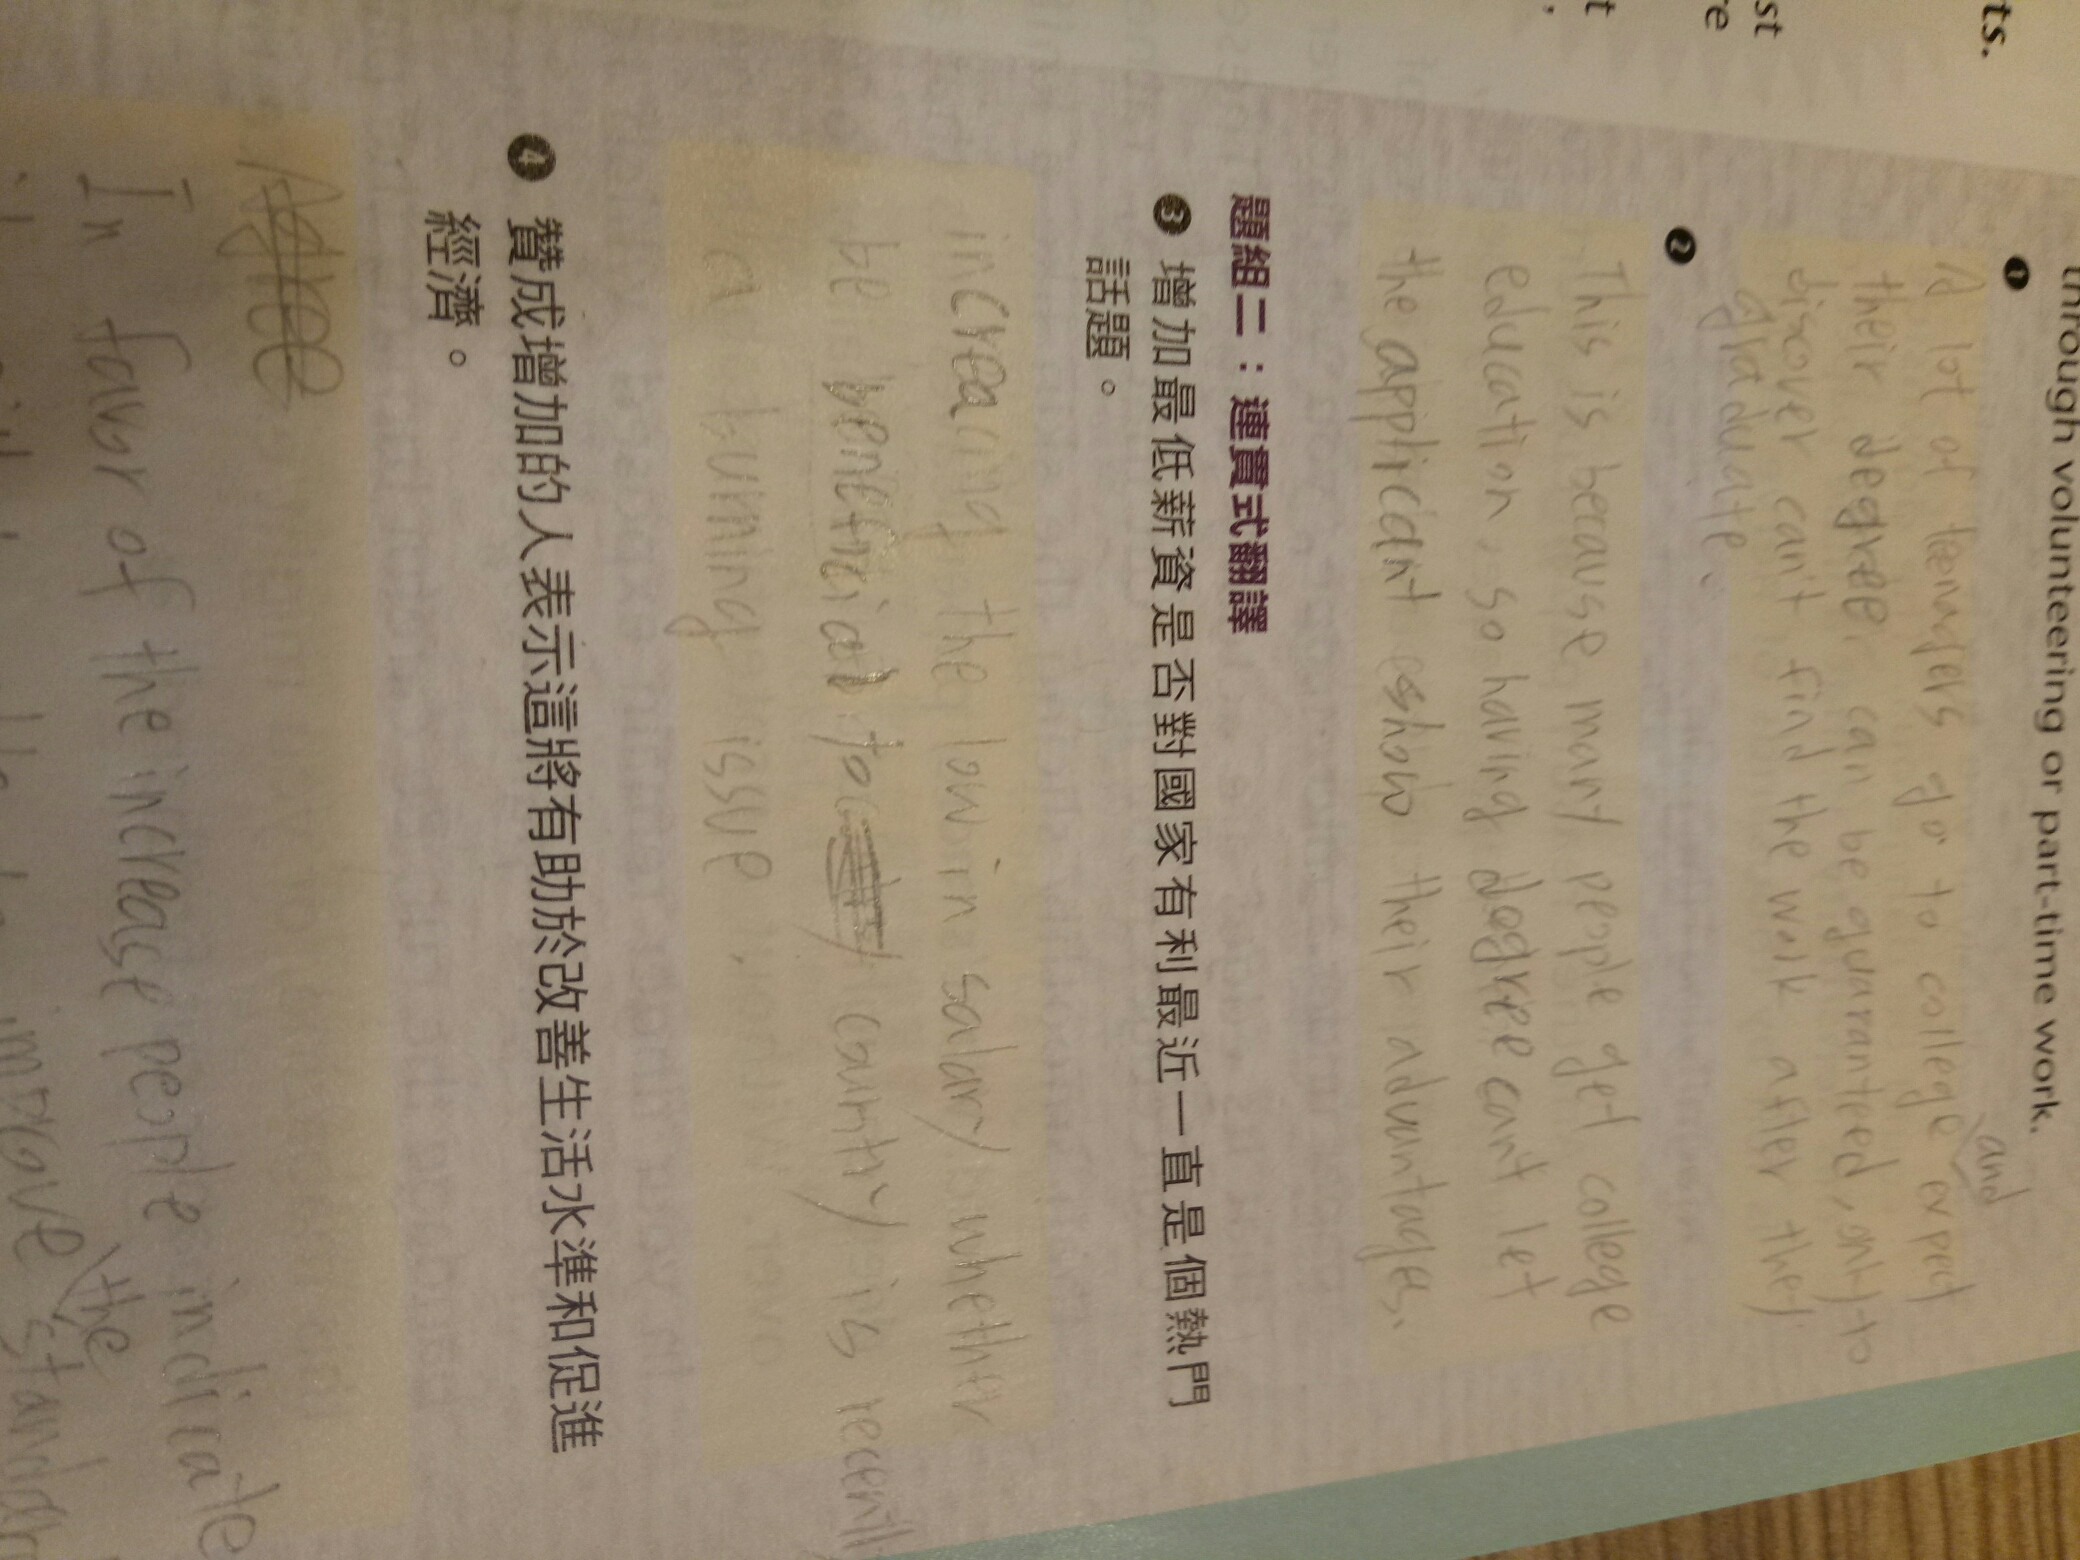 ts.
st
re
t
through volunteering or part-time work.
❶
and
A lot of teenagers go to college expect
their degree can be guaranteed, only to
discover can't find the work after they
graduate.
❷
This is because many people get college
education, so having degree can't let
the applicant eshow their advantages.
題組二：連貫式翻譯
❸ 增加最低薪資是否對國家有利最近一直是個熱門
話題。
increacing the low in salary whether
be beneficial to country is recentl
a burning issue.
❹ 贊成增加的人表示這將有助於改善生活水準和促進
經濟。
In favor of the increase people indicate
improve the standar